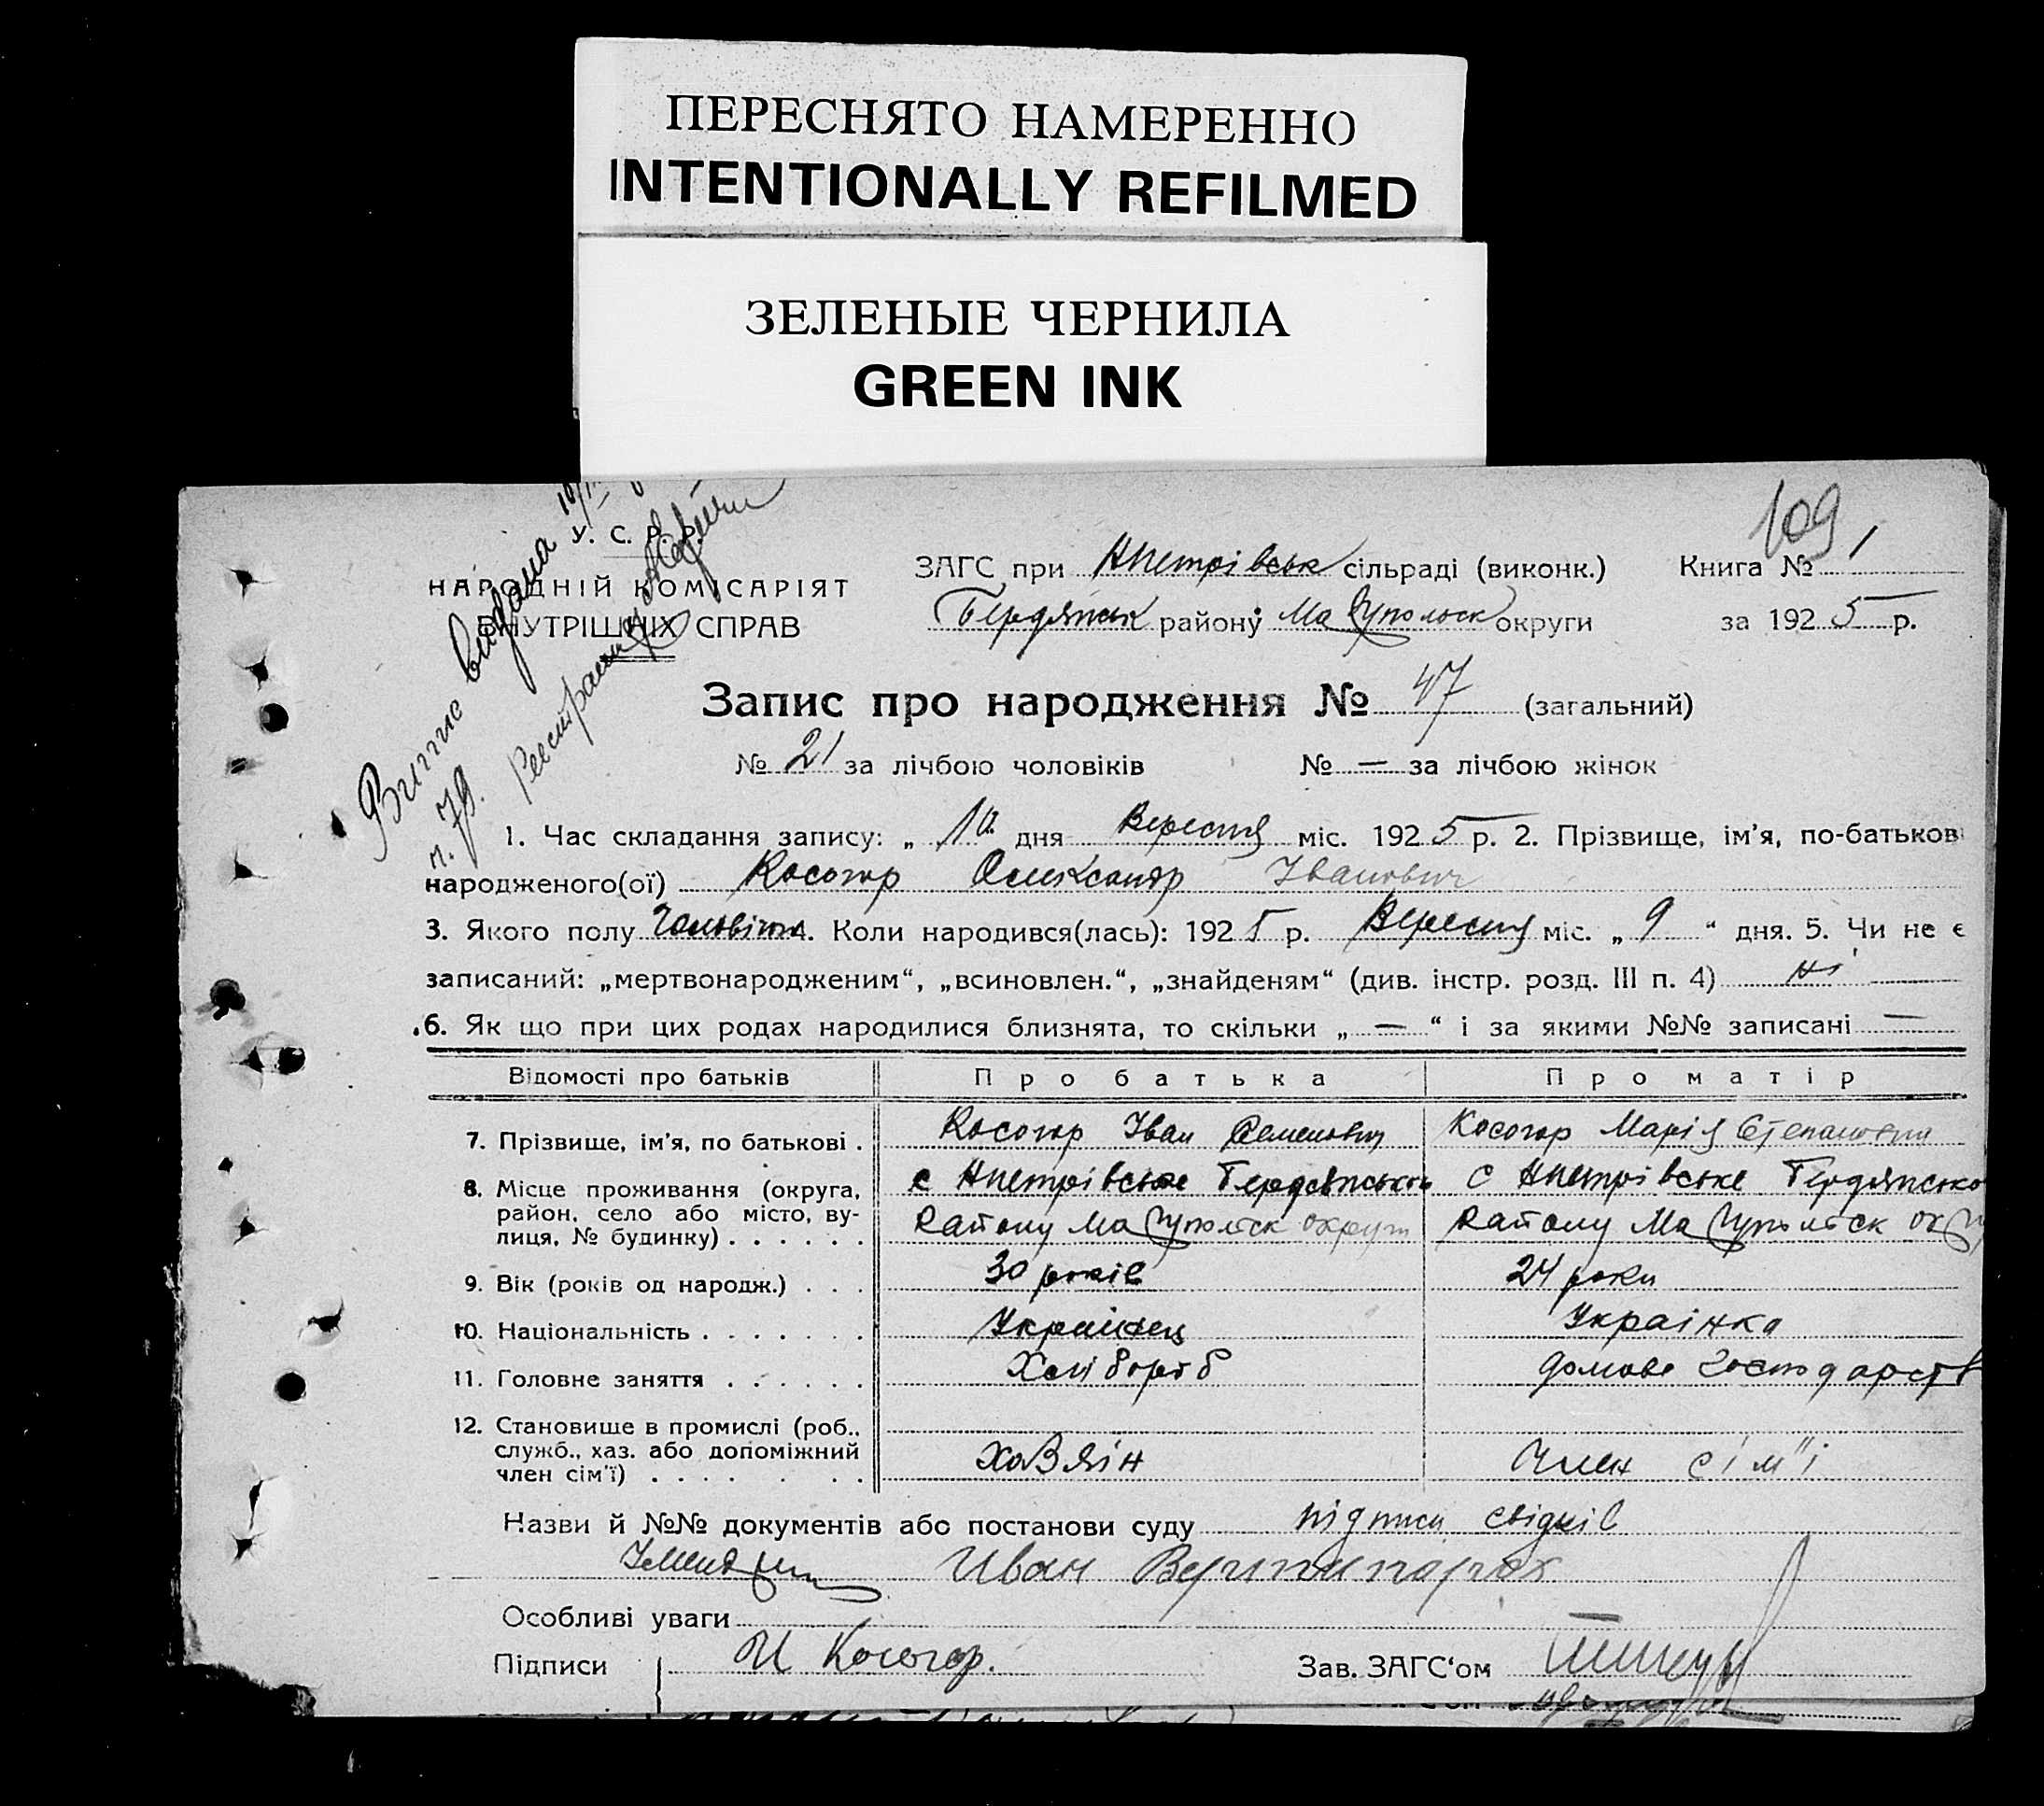 ПЕРЕСНЯТО НАМЕРЕННО
INTENTIONALLY REFILMED
ЗЕЛЕНЫЕ ЧЕРНИЛА
GREEN INK
109
У. С. Р. Р.
НАРОДНІЙ КОМІСАРІЯТ
ВНУТРІШНІХ СПРАВ
Витис видана
п. 78.
ЗАГС при Нпетрівськ сільраді (виконк.) Книга № 1
Бердянськ району Маріупольск округи за 1925 р.
Запис про народження № 47 (загальний)
№ 21 за лічбою чоловіків № — за лічбою жінок
1. Час складання запису: „ дня Вересня міс. 1925 р. 2. Прізвище, ім'я, по-батьков
народженого(ої) Косогор Олександр Іванович
3. Якого полу 4. Коли народився(лась): 1925 р. Вересня міс. „ 9 “ дня. 5. Чи не є
записаний: „мертвонародженим“, „всиновлен.“, „знайденям“ (див. інстр. розд. III п. 4) ні
6. Як що при цих родах народилися близнята, то скільки „ — “ і за якими №№ записані —
Відомості про батьків Про батька Про матір
7. Прізвище, ім'я, по батькові . Косогор Іван Семенович Косогор Марія Степановна
8. Місце проживання (округа, район, село або місто, вулиця, № будинку) . . . . . .
с Нпетрівське Бердянського
Району Маріупольск округи
с Нпетрівське Бердянсько
Району Маріупольск окру
9. Вік (років од народж.) . . . 30 років 24 роки
10. Національність . . . . . . . Українец Українка
11. Головне заняття . . . . . . Хлібороб домове господарств
12. Становище в промислі (роб., служб., хаз. або допоміжний член сім'ї) . . . . . . ХаЗяїн Член сім"ї
Назви й №№ документів або постанови суду підписи свідків
Иван
Особливі уваги
Підписи И Косогор. Зав. ЗАГС‘ом